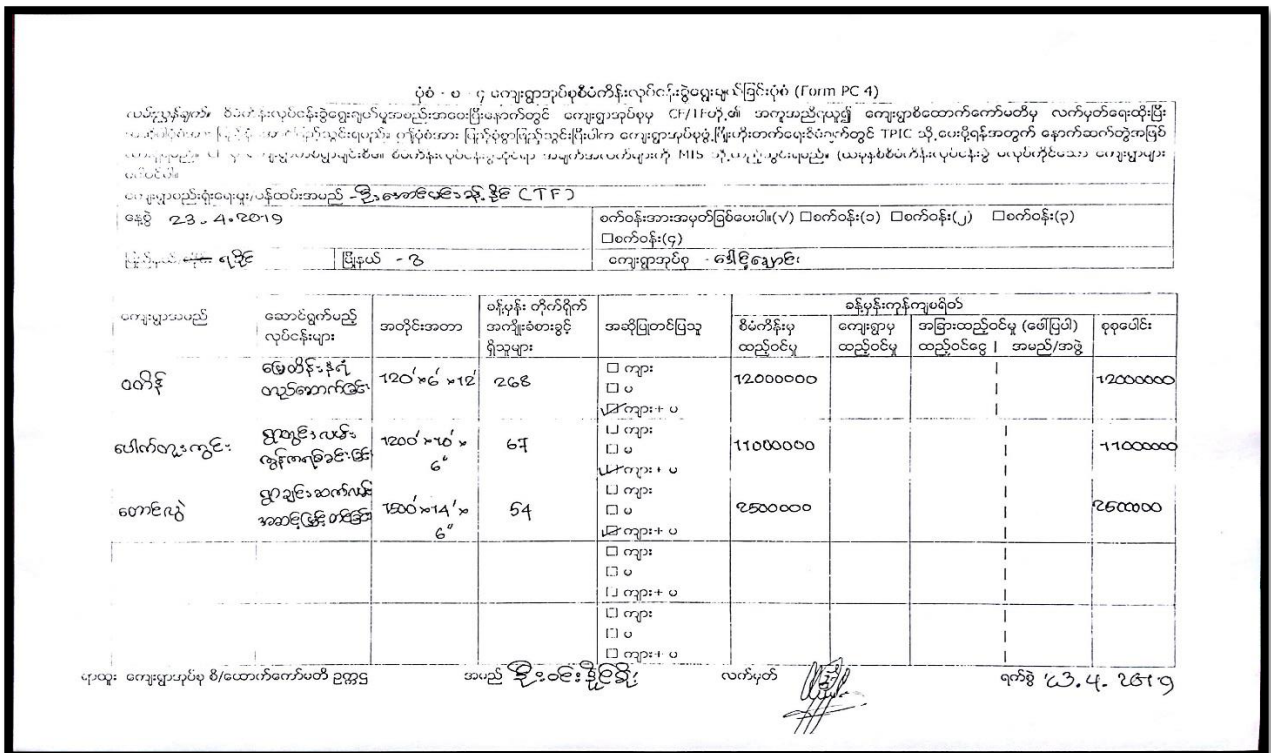 ပုံစံ - ပ - ၄ ကျေးရွာအုပ်စုစီမံကိန်းလုပ်ငန်းခွဲရွေးချယ်ခြင်းပုံစံ (Form PC 4)
လမ်းညွှန်ချက်။ စီမံကိန်းလုပ်ငန်းခွဲရွေးချယ်မှုအစည်းအဝေးပြီးနောက်တွင် ကျေးရွာအုပ်စုမှ CF/TFတို့၏ အကူအညီရယူ၍ ကျေးရွာစီထောက်ကော်မတီမှ လက်မှတ်ရေးထိုးပြီး
ဖြည့်သွင်းရမည်။ ဤပုံစံအား ပြည့်စုံစွာဖြည့်သွင်းပြီးပါက ကျေးရွာအုပ်စုဖွံ့ဖြိုးတိုးတက်ရေးစီမံချက်တွင် TPIC သို့ပေးပို့ရန်အတွက် နောက်ဆက်တွဲအဖြစ်
စီမံကိန်းလုပ်ငန်းခွဲဆိုင်ရာ အချက်အလက်များကို MIS သို့ထည့်သွင်းရမည်။ (ယခုနှစ်စီမံကိန်းလုပ်ငန်းခွဲ မလုပ်ကိုင်သော ကျေးရွာများ
မပါဝင်ပါ။
ကျေးရွာစည်းရုံးရေးမှူး/ဝန်ထမ်းအမည် - ဦးအောင်မင်းသန့်နိုင် (CTF)
နေ့စွဲ 23.4.2019 စက်ဝန်းအားအမှတ်ခြစ်ပေးပါ။(√) □စက်ဝန်း(၁) □စက်ဝန်း(၂) □စက်ဝန်း(၃)
□စက်ဝန်း(၄)
ပြည်နယ်/တိုင်း ရခိုင် မြို့နယ် - ကျေးရွာအုပ်စု -
ကျေးရွာအမည် ဆောင်ရွက်မည့် လုပ်ငန်းများ အတိုင်းအတာ ခန့်မှန်း တိုက်ရိုက် အကျိုးခံစားခွင့် ရှိသူများ အဆိုပြုတင်ပြသူ ခန့်မှန်းကုန်ကျစရိတ်
စီမံကိန်းမှ ထည့်ဝင်မှု ကျေးရွာမှ ထည့်ဝင်မှု အခြားထည့်ဝင်မှု (ဖေါ်ပြပါ) ထည့်ဝင်ငွေ | အမည်/အဖွဲ့ စုစုပေါင်း
မြေထိန်းနံရံ 120'×6'×12' 268 □ ကျား 12000000 12000000
တည်ဆောက်ခြင်း □ မ
☑ ကျား + မ
ပေါက်တူးကွင်း ရွာတွင်းလမ်း 1200'×10'× 67 □ ကျား 11000000 11000000
ကွန်ကရစ်ခင်းခြင်း 6" □ မ
☑ ကျား + မ
ရွာချင်းဆက်လမ်း 1500'×14'× 54 □ ကျား 2500000 2500000
အဆင့်မြှင့်တင်ခြင်း 6" □ မ
☑ ကျား + မ
□ ကျား
□ မ
□ ကျား + မ
□ ကျား
□ မ
□ ကျား + မ
ရာထူး ကျေးရွာအုပ်စု စီ/ထောက်ကော်မတီ ဥက္ကဋ္ဌ အမည် လက်မှတ် ရက်စွဲ 23.4.2019